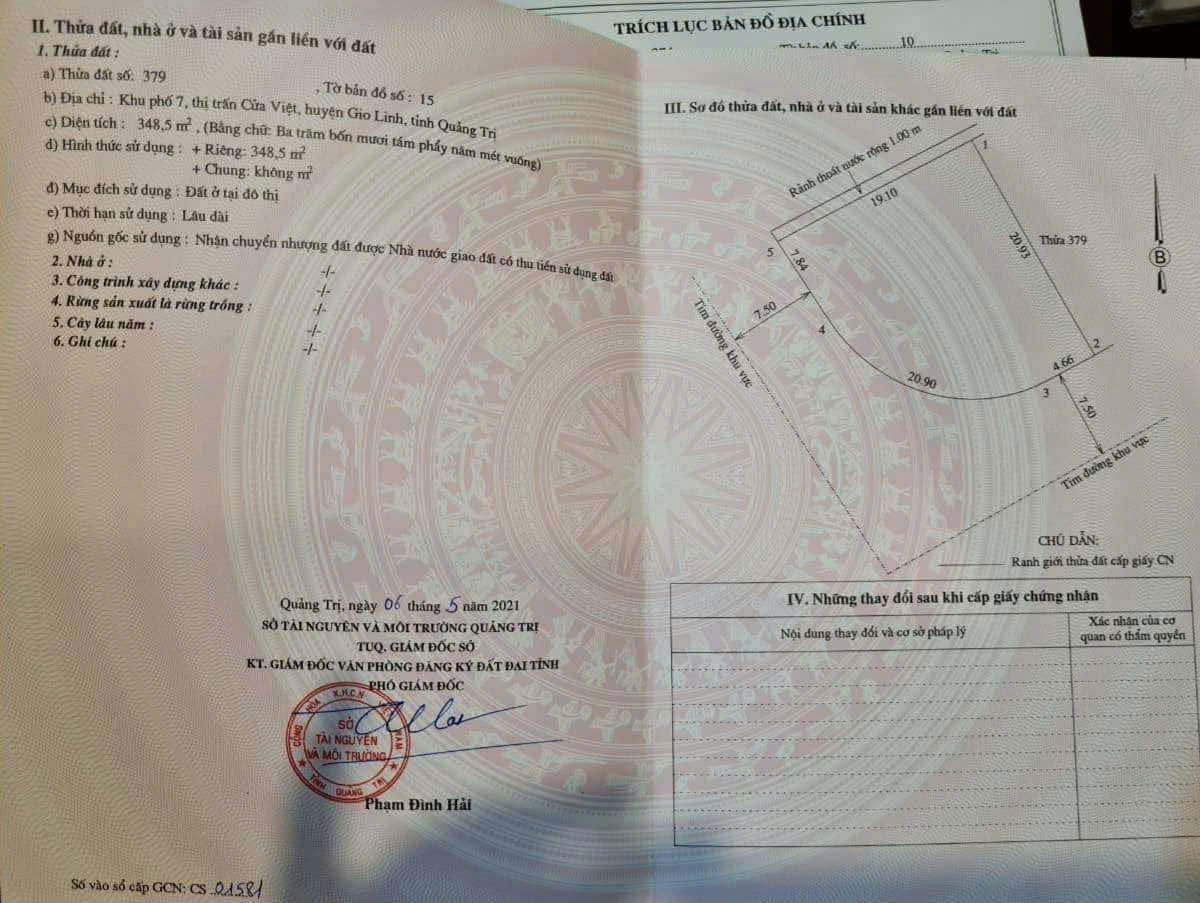 TRÍCH LỤC BẢN ĐỒ ĐỊA CHÍNH
10
II. Thửa đất, nhà ở và tài sản gắn liền với đất
1. Thửa đất :
a) Thửa đất số: 379 , Tờ bản đồ số : 15
b) Địa chỉ : Khu phố 7, thị trấn Cửa Việt, huyện Gio Linh, tỉnh Quảng Trị
c) Diện tích : 348,5 m², (Bằng chữ: Ba trăm bốn mươi tám phẩy năm mét vuông)
d) Hình thức sử dụng : + Riêng: 348,5 m²
+ Chung: không m²
đ) Mục đích sử dụng : Đất ở tại đô thị
e) Thời hạn sử dụng : Lâu dài
g) Nguồn gốc sử dụng : Nhận chuyển nhượng đất được Nhà nước giao đất có thu tiền sử dụng đất
2. Nhà ở : -/-
3. Công trình xây dựng khác : -/-
4. Rừng sản xuất là rừng trồng : -/-
5. Cây lâu năm : -/-
6. Ghi chú : -/-
Quảng Trị, ngày 06 tháng 5 năm 2021
SỞ TÀI NGUYÊN VÀ MÔI TRƯỜNG QUẢNG TRỊ
TUQ. GIÁM ĐỐC SỞ
KT. GIÁM ĐỐC VĂN PHÒNG ĐĂNG KÝ ĐẤT ĐAI TỈNH
PHÓ GIÁM ĐỐC
CỘNG HÒA X.H.C.N VIỆT NAM
SỞ
TÀI NGUYÊN
VÀ MÔI TRƯỜNG
TỈNH QUẢNG TRỊ
Phạm Đình Hải
Số vào sổ cấp GCN: CS 01581
III. Sơ đồ thửa đất, nhà ở và tài sản khác gắn liền với đất
Rãnh thoát nước rộng 1.00 m
1
19.10
5
7.84
20.93
Thửa 379
B
7.50
4
Tim đường khu vực
20.90
2
4.66
3
7.50
Tim đường khu vực
CHÚ DẪN:
Ranh giới thửa đất cấp giấy CN
IV. Những thay đổi sau khi cấp giấy chứng nhận
Nội dung thay đổi và cơ sở pháp lý
Xác nhận của cơ
quan có thẩm quyền